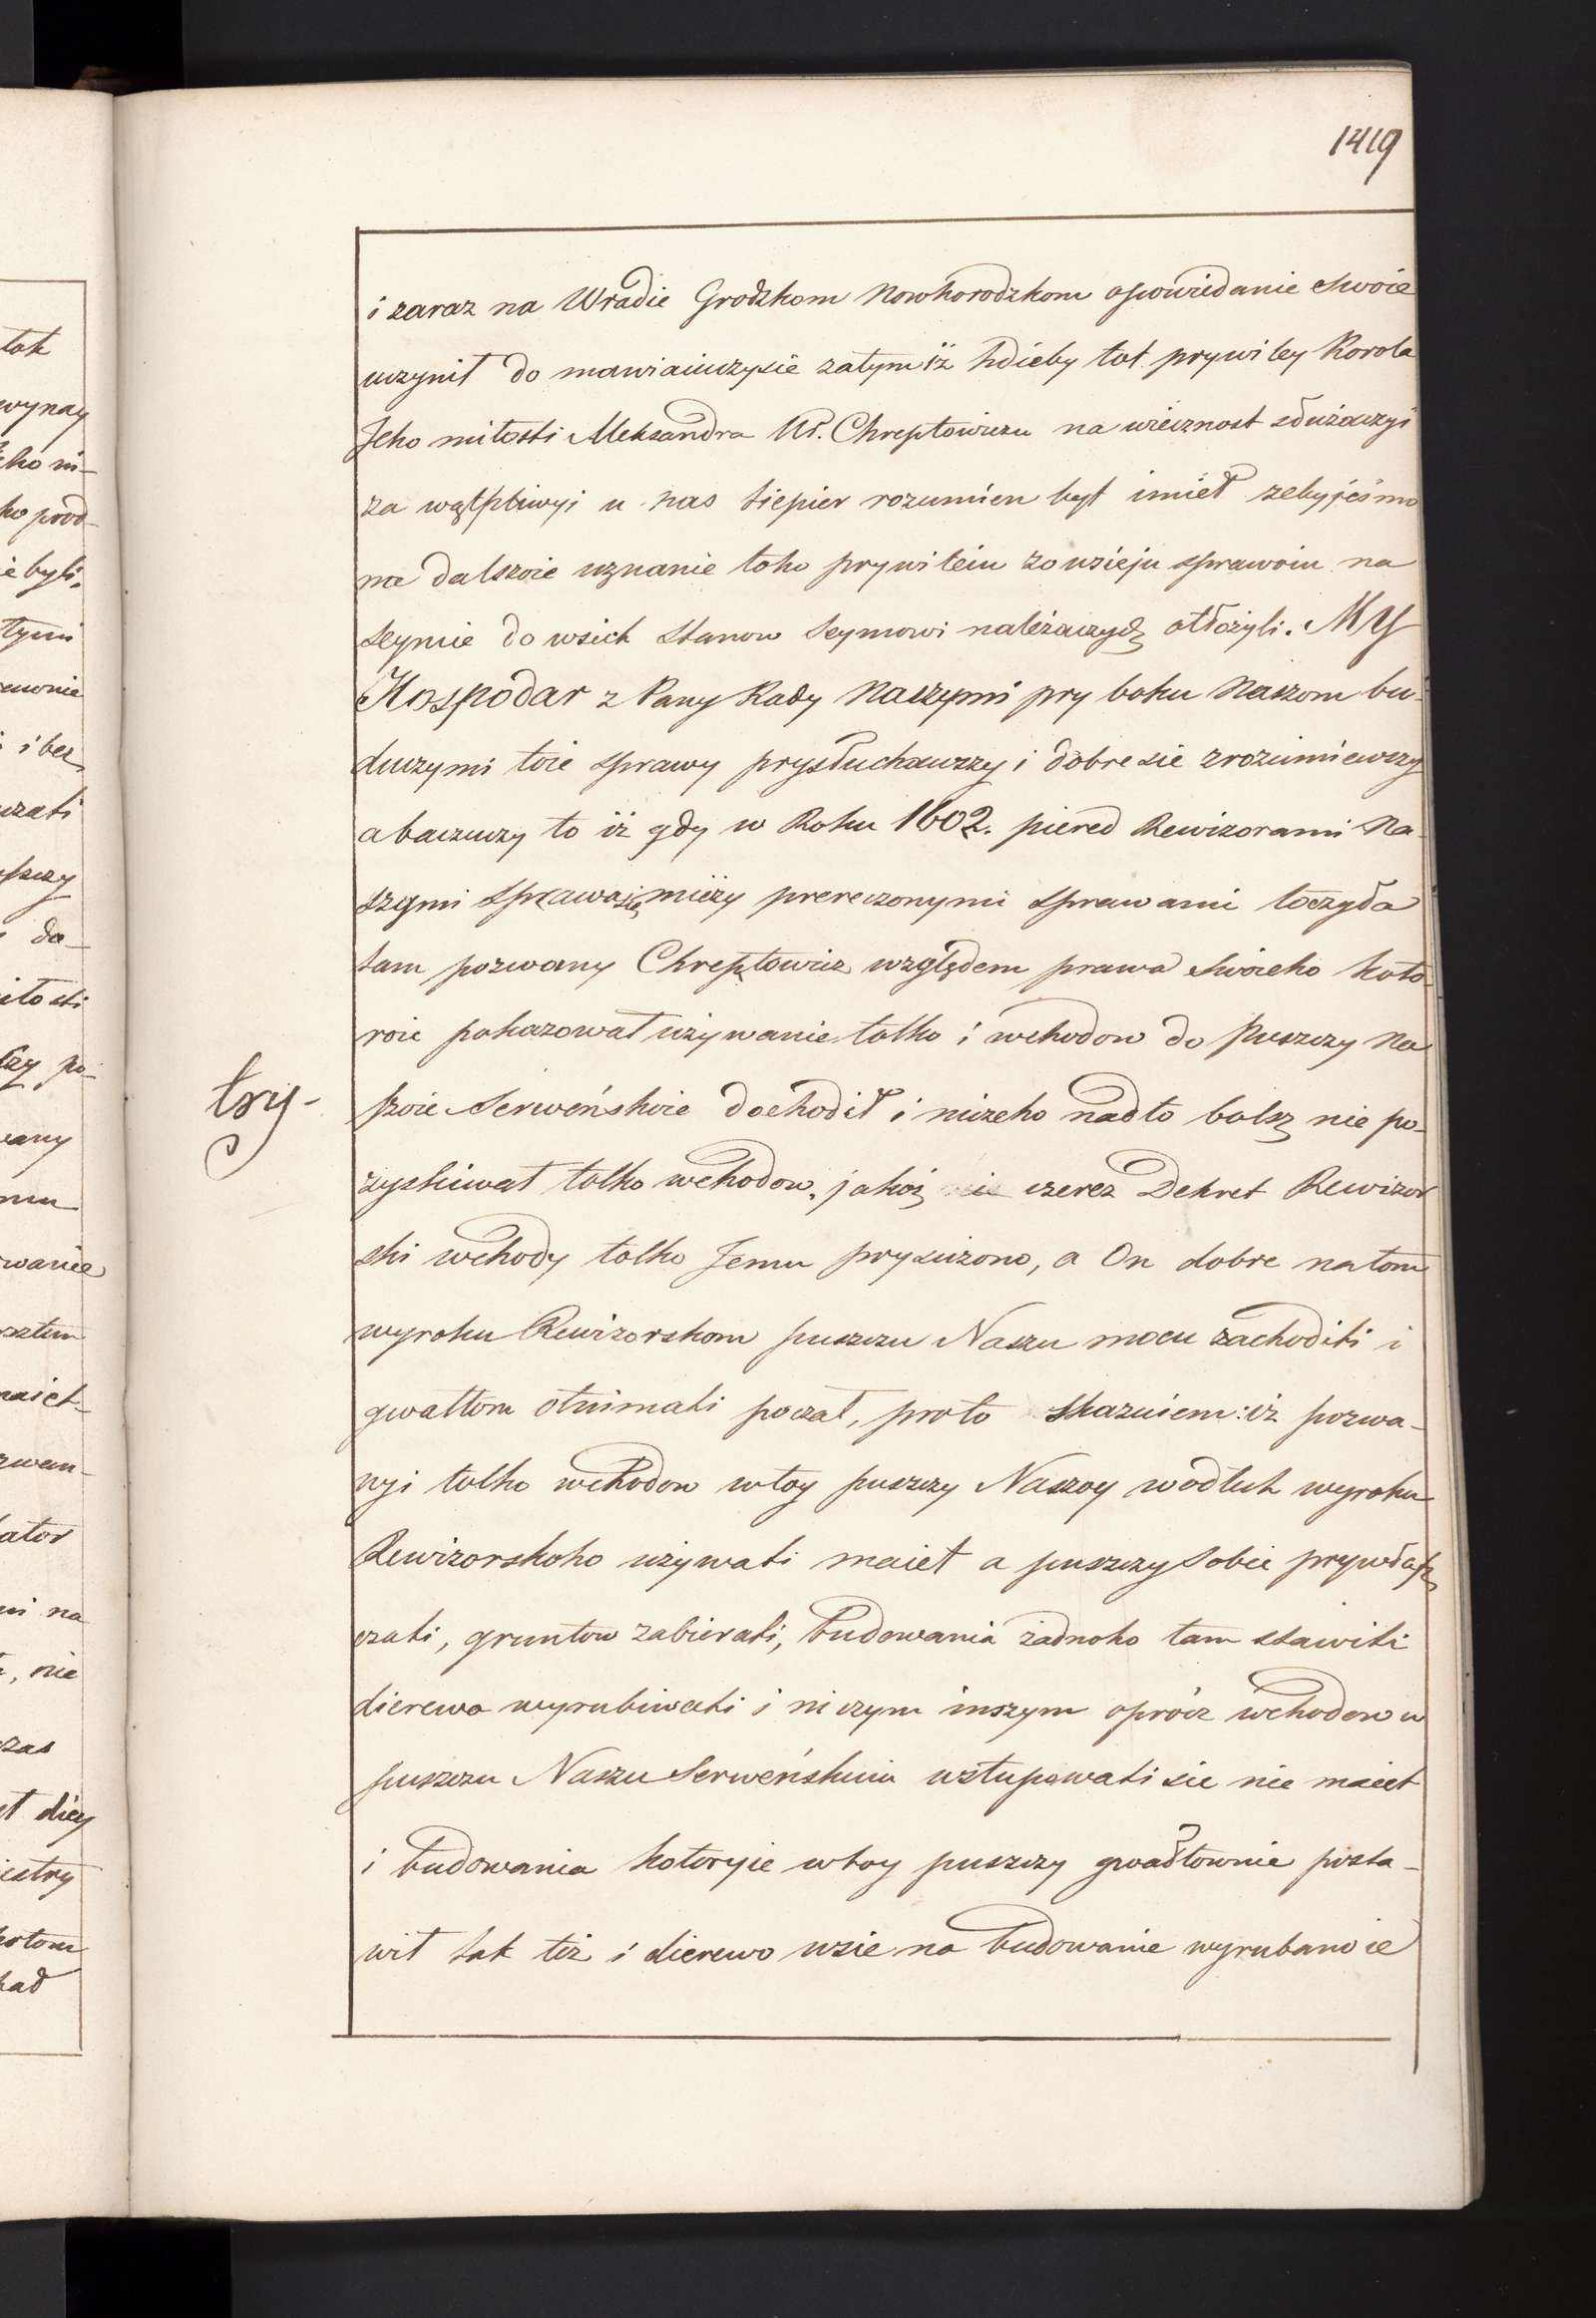 1419
i zaraz na Wradie Grodzkom Nowhorodzkom opowiedanie swoie
uczynił do mawiaiuczysie zatym iż hdieby tot prywiley Korola
Jeho miłosti Aleksandra Ur. Chreptowiczu na wiecznost służaczyi
za wątpliwyi u nas tiepier rozumien był imieł żebyjeśmo
na dalszoie uznanie toho prywileiu zo wsieju sprawoiu na
seymie do wsich stanow seymowi należaczych otłożyli. My
Hospodar z Pany Rady Naszymi pry boku Naszom bu-
duczymi toie sprawy prysłuchawszy i dobre sie zrozumiewszy
a baczuczy to iż gdy w Roku 1602. piered Rewizorami Na-
szymi sprawa się miży prereczonymi sprawami toczyła
tam pozwany Chreptowicz względem prawa swoieho koto-
roie pokazował używanie tolko i wchodow do puszczy Na
szoie Serweńskoie dochodił i niczeho nadto bolsz nie po-
zyskiwał tolko wchodow, jakoż czerez Dekret Rewizor
ski wchody tolko Jemu prysużono, a On dobre na tom
wyroku Rewizorskom puszczu Naszu mocu zachoditi i
gwałtom otnimati poczał, proto skazuiem: iż pozwa-
nyi tolko wchodow w toy puszczy Naszoy wodłuh wyroku
Rewizorskoho używati maiet a puszczy sobie prywłasz
czati, gruntow zabierati, budowania żadnoho tam stawiti
dierewa wyrubiwati i niczym inszym oprócz wchodow w
puszczu Naszu Serweńskuiu wstupowati sie nie maiet
i budowania kotoryie w toy puszczy gwałtownie posta-
wił tak też i dierewo wsie na budowanie wyrubanoie
try-